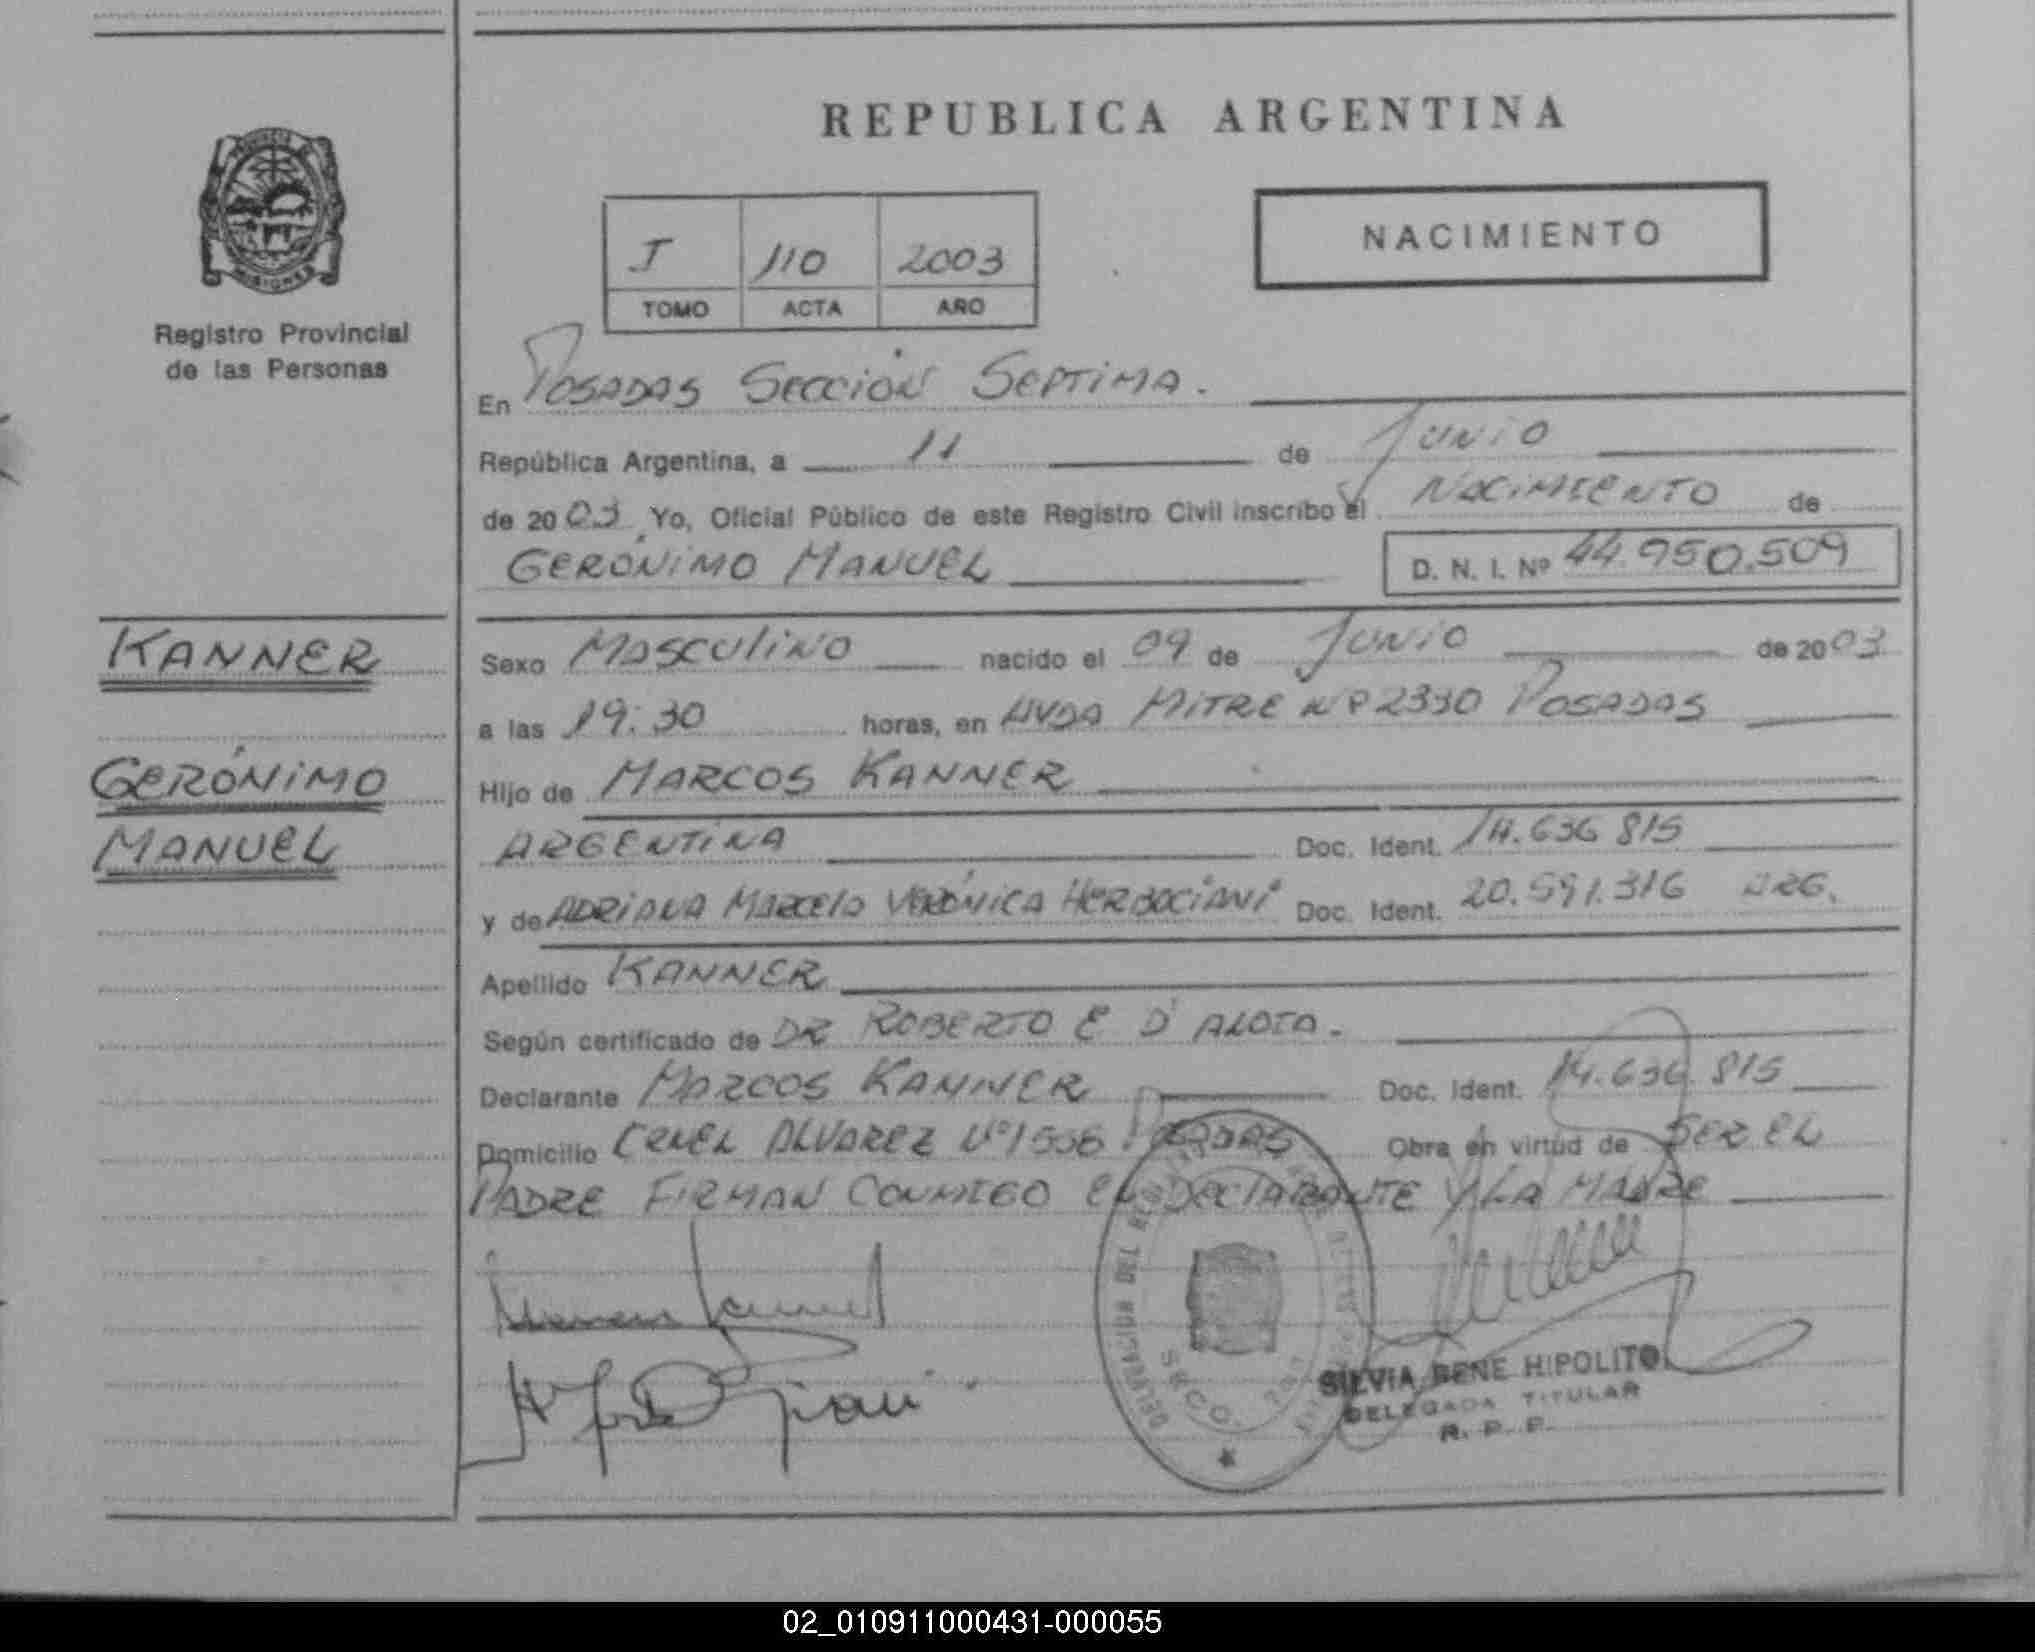 REPUBLICA ARGENTINA
NACIMIENTO
I 110 2003
TOMO ACTA AÑO
Registro Provincial
de las Personas
En POSADAS SECCIÓN SEPTIMA.
República Argentina, a 11 de JUNIO
de 2003 Yo, Oficial Público de este Registro Civil inscribo el NACIMIENTO de
GERÓNIMO MANUEL D. N. I. Nº 44.950.509
KANNER
GERÓNIMO
MANUEL
Sexo MASCULINO nacido el 09 de JUNIO de 2003
a las 19:30 horas, en AVDA MITRE Nº 2330 POSADAS
Hijo de MARCOS KANNER
ARGENTINA Doc. Ident. 14.636 815
y de ADRIANA MARCELA VERÓNICA Doc. Ident. 20.591.316 ARG.
Apellido KANNER
Según certificado de DR ROBERTO E D'
Declarante MARCOS KANNER Doc. Ident. 14.636.815
Domicilio CRNEL ALVAREZ Nº 1556 POSADAS Obra en virtud de SER EL
PADRE FIRMAN CONMIGO EL DECLARANTE Y LA MADRE
SILVIA RENE HIPOLITO
DELEGADA TITULAR
R. P. P.
02_010911000431-000055